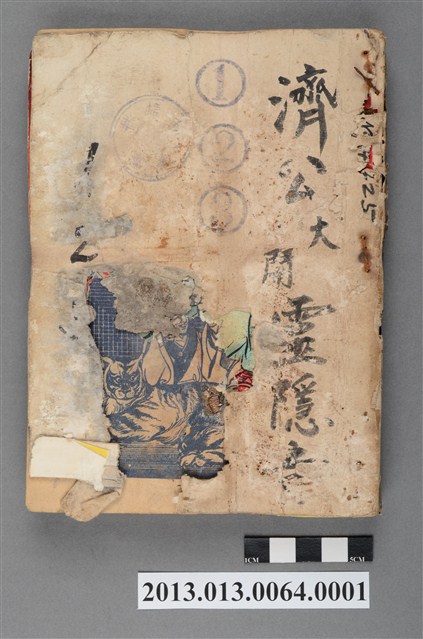 濟公大鬧靈隱寺
①
②
③
25
1CM
5CM
2013.013.0064.0001